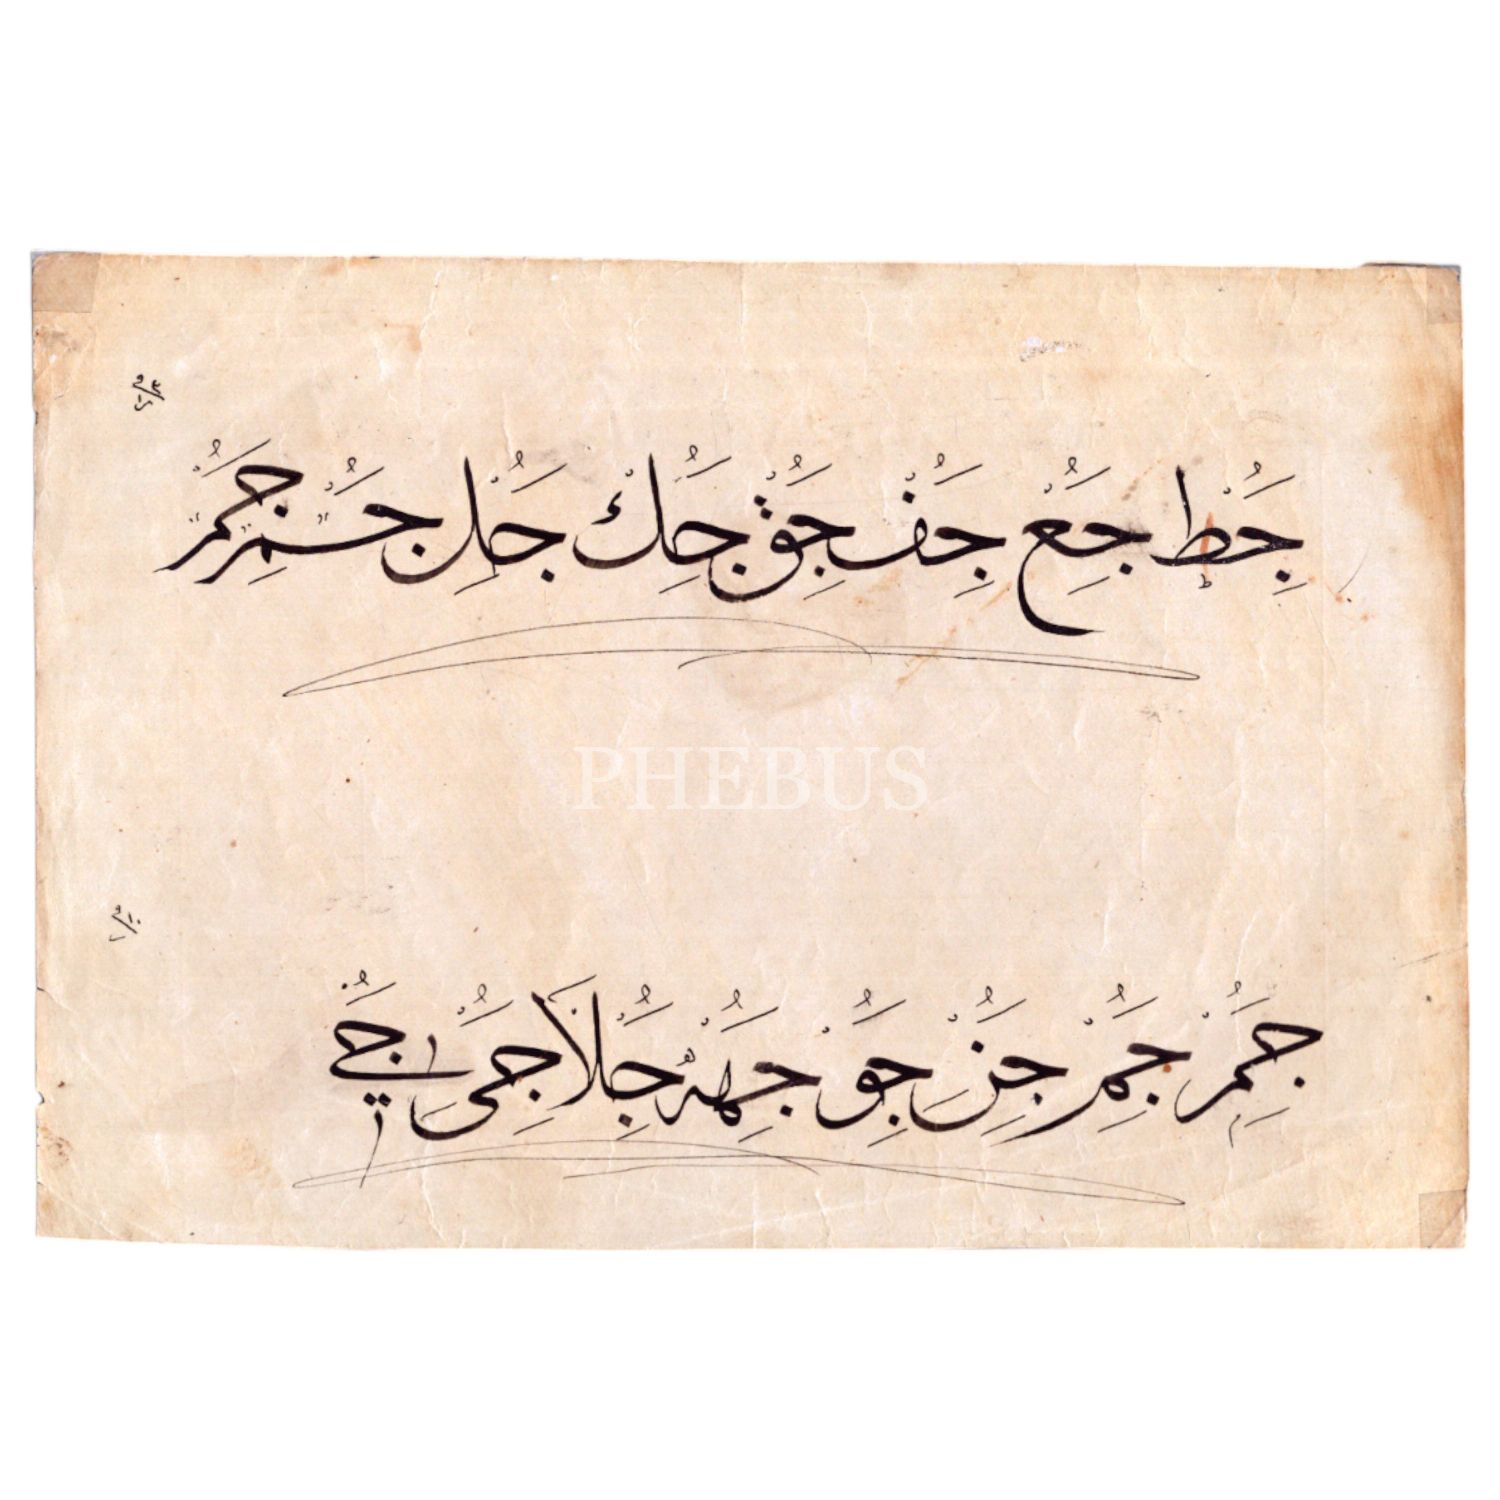 جط جع جف جق جك جل جم جم
PHEBUS
جم جم جن جو جه جلا جى جے